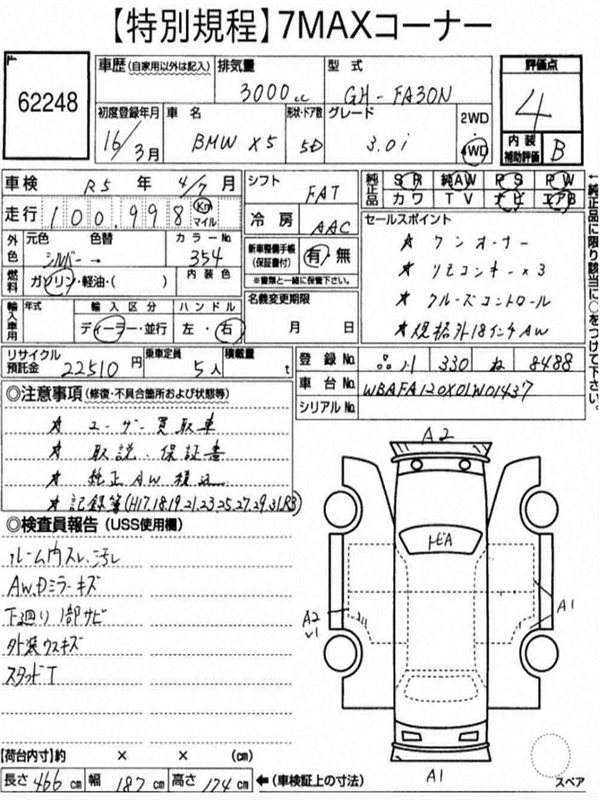 【特別規程】7MAXコーナー
62248
車歴 (自家用以外は記入) 排気量 3000cc 型式 GH-FA30N
初度登録年月 16/3月 車名 BMW X5 形状・ドア数 5D グレード 3.0i 2WD 4WD
評価点 4
内装補助評価 B
車検 R5年 4/7月 シフト FAT
走行 100,998 Km マイル 冷房 AAC
純正品 SR 純AW PS PW
カワ TV ナビ エアB
外色 元色 色替 カラーNo.
シルバー→ 354
新車整備手帳 (保証書付) 有・無
※書類と一緒に保管下さい。
燃料 ガソリン・軽油・( ) 内装色
輸入車用 年式 輸入区分 ハンドル
ディーラー・並行 左・右
名義変更期限 月 日
セールスポイント
★ ワンオーナー
★ リモコンキー×3
★ クルーズコントロール
★ 規格外18インチAW
←純正品に限り該当に○をつけて下さい。
リサイクル預託金 22510円 乗車定員 5人 積載量 t
登録No. 330 ね 8488
車台No. WBAFA120X01W01437
シリアルNo.
◎注意事項 (修復・不具合箇所および状態等)
★ ユーザー買取車
★ 取説・保証書
★ 純正AW積込
★ 記録簿(H17.18.19.21.23.25.27.29.31.R3)
◎検査員報告 (USS使用欄)
ルーム内スレ、汚レ
AW、Dミラーキズ
下廻り1部サビ
外装ウスキズ
スタッドT
A2
トビA
A2
v1
A1
A1
スペア
【荷台内寸】約 × × (cm)
長さ 466cm 幅 187cm 高さ 174cm ←(車検証上の寸法)